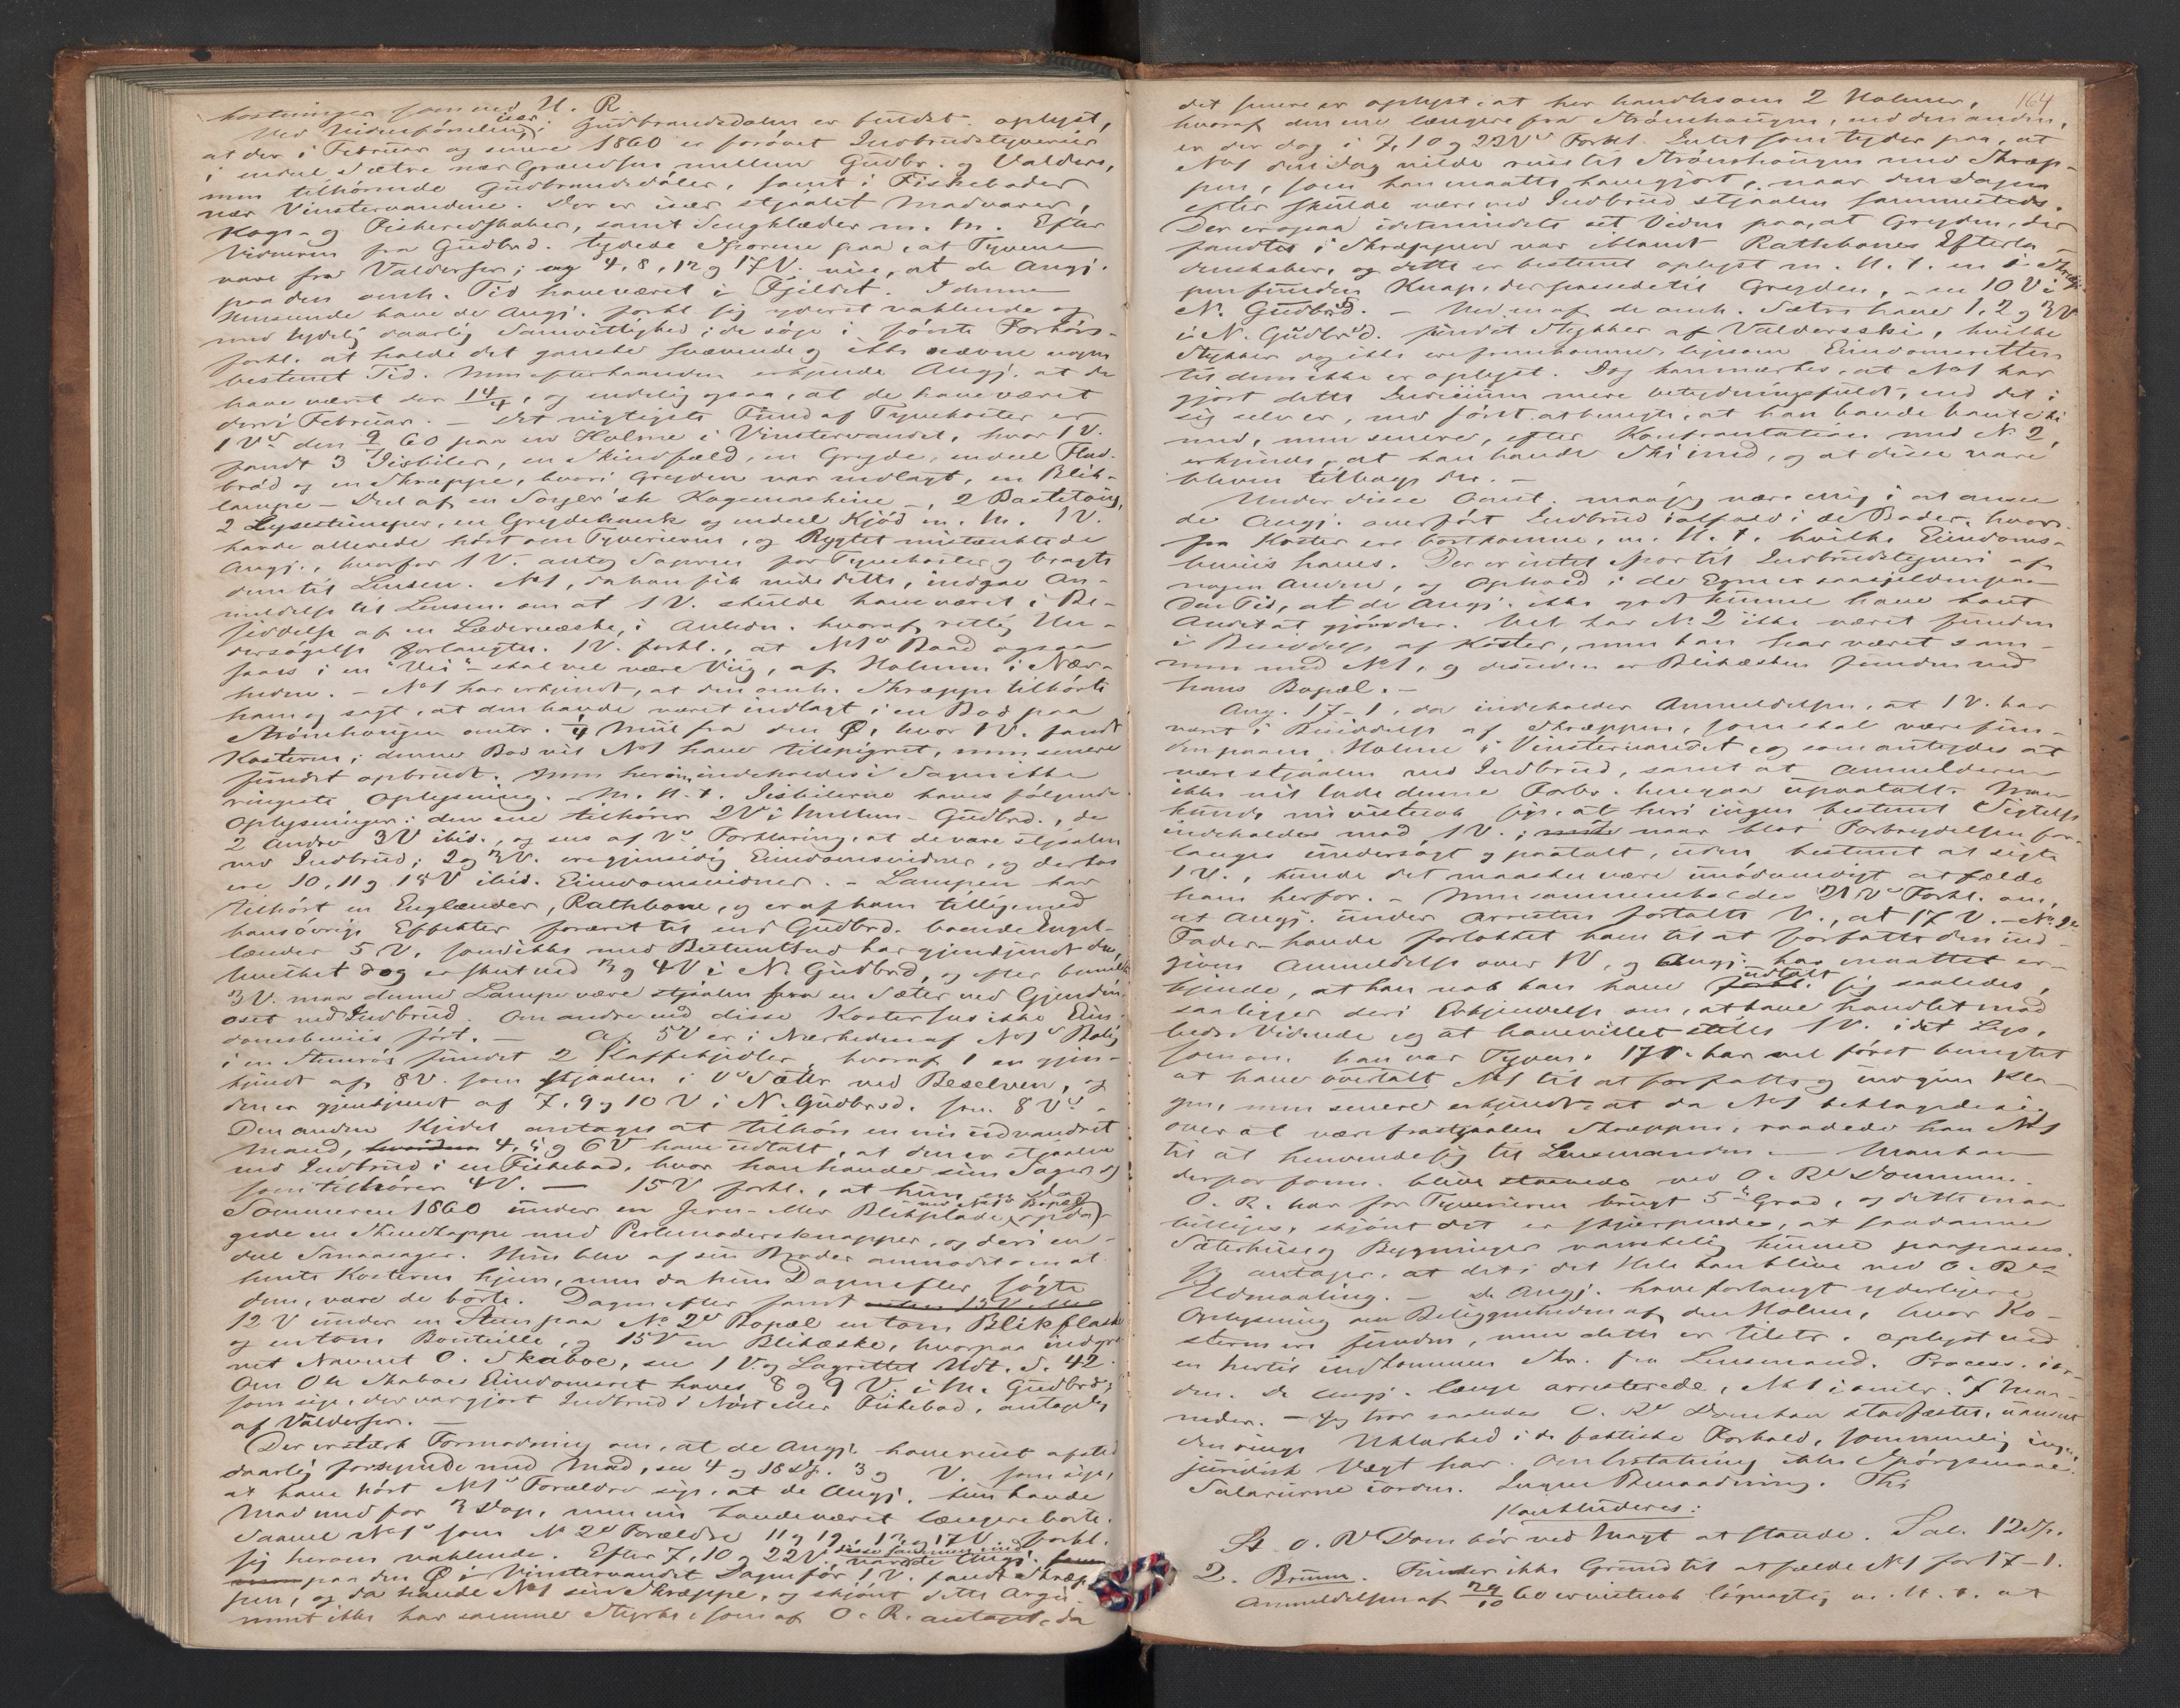 kostninger som ved U. R.
Ved Vidneførsel især i Gudbrandsdalen er fuldst. oplyst,
at der i Februar og senere 1860 er forøvet Indbrudstyverier
i endeel Sætre nær Grændsen mellem Gudbr. og Valders,
men tilhørende Gudbrandsdøler, samt i Fiskeboder
nær Vinstervandene. Der er især stjaalet Madvarer,
Koge- og Fiskeredskaber, samt Sengklæder m. M. Efter
Vidnerne fra Gudbrd. tydede Sporene paa, at Tyvene
vare fra Valders; og 4, 8, 12 og 17 V. vise, at de Angj.
paa den omh. Tid have været i Fjeldet. I denne
Henseende have de Angj. forkl. sig yderst vaklende og
med tydelig daarlig Samvittighed; de søge i første Forhørs-
forkl. at holde det ganske svævende og ikke nævne nogen
bestemt Tid. Men efterhaanden erkjende Angj. at de
have været der 14/4, og endelig ogsaa, at de have været
der i Februar. – Det vigtigste Fund af Tyvekoster er
1 Vs den 9/7 60 paa en Holme i Vinstervandet, hvor 1 V.
fandt 3 Isbiler, en Skindfæld, en Gryde, endeel Flad-
brød og en Skræppe, hvori Gryden var indlagt, en Blik-
lampe – Deel af en Soyer'sk Kogemaskine –, 2 Bastetoug,
2 Lysestumper, en Grydehank og endeel Kjød m. M. 1 V.
havde allerede hørt om Tyverierne, og Rygtet mistænkte de
Angj., hvorfor 1 V. antog Sagerne for Tyvekoster og bragte
dem til Lensm. No 1, da han fik vide dette, indgav An-
meldelse til Lensm. om at 1 V. skulde have været i Be-
siddelse af en Lædervæske, i Anledn. hvoraf retlig Un-
dersøgelse forlangtes. 1 V. forkl., at No 1s Baad ogsaa
saaes i en "Vis" – skal vel være Viig, af Holmen i Nær-
heden. – No 1 har erkjendt, at den omh. Skræppe tilhørte
ham og sagt, at den havde været indlagt i en Bod paa
Strømhougen omtr. 1/4 Miil fra den Ø, hvor 1 V. fandt
Kosterne; denne Bod vil No 1 have tilspigret, men senere
fundet opbrudt. Men herom indeholdes i Sagen ikke
ringeste Oplysning. – M. H. t. Isbilerne haves følgende
Oplysninger: den ene tilhører 2 V i Mellem-Gudbrd., de
2 andre 3 V ibid., og sees af Vs Forklaring, at de vare stjaalne
ved Indbrud; 2 og 3 V. ere gjensidig Eiendomsvidner, og derhos
ere 10, 11 og 18 V ibid. Eiendomsvidner. – Lampen har
tilhørt en Englænder, Rathbone, og er af ham tilligemed
hans øvrige Effekter foræret til en i Gudbrd. boende Engel-
lænder 5 V, som ikke med Bestemthed har gjenkjendt den,
hvilket dog er skeet ved 3 og 4 V i N. Gudbrd, og efter bemeldte
3 V. maa denne Lampe være stjaalen fra en Sæter ved Gjendin-
oset ved Indbrud. Om andre end disse Koster sees ikke Eien-
domsbeviis ført. – Af 5 V er i Nærheden af No 1s Bolig
i en Steenrøs fundet 2 Kaffekjedler, hvoraf 1 en gjen-
kjendt af 8 V. som stjaalen i Vs Sæter ved Beselven, og
den er gjenkjendt af 7, 9 og 10 V i N. Gudbrd. som 8 Vs.
Den anden Kjedel antages at tilhøre en nu udvandret
Mand, 4, 5 og 6 V have udtalt, at den er stjaalen
ved Indbrud i en Fiskebod, hvor han havde sine Sager og
som tilhører 4 V. – 15 V forkl., at hun
Sommeren 1860 under en Jern- eller Blikplade ved No 1s Bopæl opda-
gede en Skindkappe med Perlemodersknapper, og deri en-
deel Smaasager. Hun blev af sin Broder anmodet om at
hente Kosterne hjem, men da hun Dagen efter søgte
dem, vare de borte. Dagen efter fandt
12 V under en Steen paa No 2s Bopæl en tom Blikflaske
og en tom Bouteille, og 15 V en Blikæske, hvorpaa indgra-
vet Navnet O. Skaboe, see 1 V. og Lagrettet Udt. S. 42.
Om Ole Skaboes Eiendomsret haves 8 og 9 V. i M. Gudbrd.,
som sige, der var gjort Indbrud i Nøst eller Fiskebod, antagelig
af Valderser. –
Der er stærk Formodning om, at de Angj. have reist afsted
daarlig forsynede med Mad, see 4 og 18 Sp. 3 og V. som sige,
at have hørt No 1s Forældre sige, at de Angj. kun havde
Mad med for 3 Dage, men nu havde været længere borte.
Saavel No 1s som No 2s Forældre 11 og 19, 13 og 17 V. forkl.
sig herom vaklende. Efter 7, 10 og 22 V. i disse sammen med vare de Angj.
paa den Ø i Vinstervandet Dagen før 1 V. fandt Skræp-
pen, og da havde No 1 sin Skræppe, og skjønt dette Argu-
ment ikke har samme Styrke, som af O. R. antaget, da
164
det senere er oplyst, at her handles om 2 Holmer,
hvoraf den ene længere fra Strømhougen, end den anden,
er der dog i 7, 10 og 22 Vs Forkl. Intet som tyder paa, at
No 1 den Dag vilde reise til Strømhougen med Skræp-
pen, som han maatte have gjort, naar den Dagen
efter skulde være ved Indbrud stjaalen sammesteds.
Der er ogsaa idetmindste eet Vidne paa, at Gryden, der
fandtes i Skræppen var blandt Rathbones Efterla-
denskaber, og dette er bestemt oplyst m. H. t. en i Skræp-
pen funden Knap, der passede til Gryden, – see 10 V i
N. Gudbrd. – Ved en af de omh. Sætre have 1, 2 og 3 V
i N. Gudbrd. fundet Stykker af Valdersski, hvilke
Stykker dog ikke ere fremkomne, ligesom Eiendomsretten
til dem ikke er oplyst. Dog kan mærkes, at No 1 har
gjort dette Indicium mere betydningsfuldt, end det i
sig selv er, ved først at benegte, at han havde havt Ski
med, men senere, efter Konfrontation med No 2,
erkjende, at han havde Ski med, og at disse vare
blevne tilbage der. –
Under disse Omst. maa jeg være enig i at ansee
de Angj. overført Indbrud ialfald i de Boder, hvor-
fra Koster ere bortkomne, m. H. t. hvilke Eiendoms-
beviis haves. Der er intet Spor til Indbrudstyveri af
nogen Anden, og Ophold i de Egne er saa sjelden paa
den Tid, at de Angj. ikke godt kunne have havt
Andet at gjøre der. Vel har No 2 ikke været funden
i Besiddelse af Koster, men han har været sam-
men med No 1, og desuden er Blikæsken funden ved
hans Bopæl. –
Ang. 17-1, da indeholder Anmeldelsen, at 1 V. har
været i Besiddelse af Skræppen, som skal være fun-
den paa en Holme i Vinstervandet, og som antydes at
være stjaalen ved Indbrud, samt at Anmelderen
ikke vil lade denne Forbr. hengaa upaatalt. Man
kunde nu vistnok sige, at heri ingen bestemt Sigtelse
indeholdes mod 1 V.; naar blot Forbrydelsen for-
langes undersøgt og paatalt, uden bestemt at sigte
1 V., kunde det maaskee være unødvendigt at fælde
ham herfor. – Men sammenholdes 21 Vs Forkl. om,
at Angj. under Arresten fortalte V., at 17 V. – No 2s
Fader – havde forlokket ham til at forfatte den ind-
givne Anmeldelse over 1 V, og Angj. har maattet er-
kjende, at han nok kan have udtalt sig saaledes,
saa ligger deri Erkjendelse om, at have handlet mod
bedre Vidende og at have villet stille 1 V. i det Lys,
som om han var Tyven. 17 V. har vel først benegtet
at have overtalt No 1 til at forfatte og indgive Kla-
gen, men senere erkjendt, at da No 1 beklagede sig
over at være frastjaalen Skræppen, raadede han No 1
til at henvende sig til Lensmanden. – Man kan
derfor form. blive ved O. Rs Dommen.
O. R. har for Tyverierne brugt 5te Grad, og dette maa
billiges, skjønt det er skjærpende, at saadanne
Sæterhuse og Bygninger vanskelig kunne paapasses.
Jeg antager, at det i det Hele kan blive ved O. Rs
Udmaaling. – De Angj. have forlangt yderligere
Oplysning om Beliggenheden af den Holme, hvor Ko-
sterne ere fundne, men dette er tilstr. oplyst ved
en hertil indkommen Skr. fra Lensmand. Process. i or-
den. De Angj. længe arresterede, No 1 i omtr. 7 Maa-
neder. – Jeg tror saaledes O. Rs Dom kan stadfæstes, uanseet
den ringe Uklarhed i de faktiske Forhold, som neppe ingen
juridisk Vægt har. Om Erstatning ikke Spørgsmaal.
Salærerne iorden. Ingen Benaadning. Thi
Konkluderes:
At O. Rs Dom bør ved Magt at stande. Sal. 12 Sp.
2. Bruun. Finder ikke Grund til at fælde No 1 for 17-1.
Anmeldelsen af 29/10 60 er vistnok løgnagtig m. H. t. at